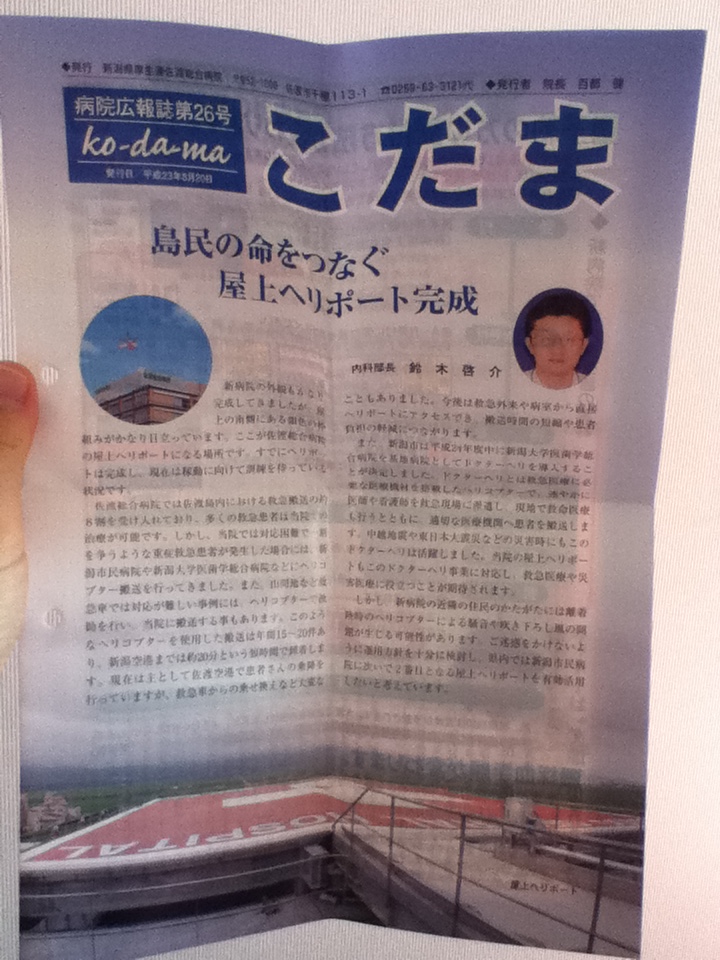 ◆発行 新潟県厚生連佐渡総合病院 佐渡市千種113-1 ☎0259-63-3121代 ◆発行者 院長 百都 健
病院広報誌第26号
ko-da-ma
発行日 平成23年8月20日
こだま
島民の命をつなぐ
屋上ヘリポート完成
内科部長 鈴木啓介
新病院の外観もかなり
完成してきましたが、屋
上の南側にある銀色の枠
組みがかなり目立っています。ここが佐渡総合病院
の屋上ヘリポートになる場所です。すでにヘリポー
トは完成し、現在は稼動に向けて訓練を待っている
状況です。
佐渡総合病院では佐渡島内における救急搬送の約
8割を受け入れており、多くの救急患者は当院での
治療が可能です。しかし、当院では対応困難で一刻
を争うような重症救急患者が発生した場合には、新
潟市民病院や新潟大学医歯学総合病院などにヘリコ
プター搬送を行ってきました。また、山間地など救
急車では対応が難しい事例には、ヘリコプターで救
助を行い、当院に搬送する事もあります。このよう
なヘリコプターを使用した搬送は年間15～20件あ
り、新潟空港までは約20分という短時間で到着しま
す。現在は主として佐渡空港で患者さんの乗降を
行っていますが、救急車からの乗せ換えなど大変な
こともありました。今後は救急外来や病室から直接
ヘリポートにアクセスでき、搬送時間の短縮や患者
負担の軽減につながります。
また、新潟市は平成24年度中に新潟大学医歯学総
合病院を基地病院としてドクターヘリを導入するこ
とが決定しました。ドクターヘリとは救急医療に必
要な医療機材を搭載したヘリコプターで、速やかに
医師や看護師を救急現場に派遣し、現地で救命医療
を行うとともに、適切な医療機関へ患者を搬送しま
す。中越地震や東日本大震災などの災害時にもこの
ドクターヘリは活躍しました。当院の屋上ヘリポー
トもこのドクターヘリ事業に対応し、救急医療や災
害医療に役立つことが期待されます。
しかし、新病院の近隣の住民のかたがたには離着
陸時のヘリコプターによる騒音や吹き下ろし風の問
題が生じる可能性があります。ご迷惑をかけないよ
うに運用方針を十分に検討し、県内では新潟市民病
院に次いで2番目となる屋上ヘリポートを有効活用
したいと考えています。
HOSPITAL
屋上ヘリポート